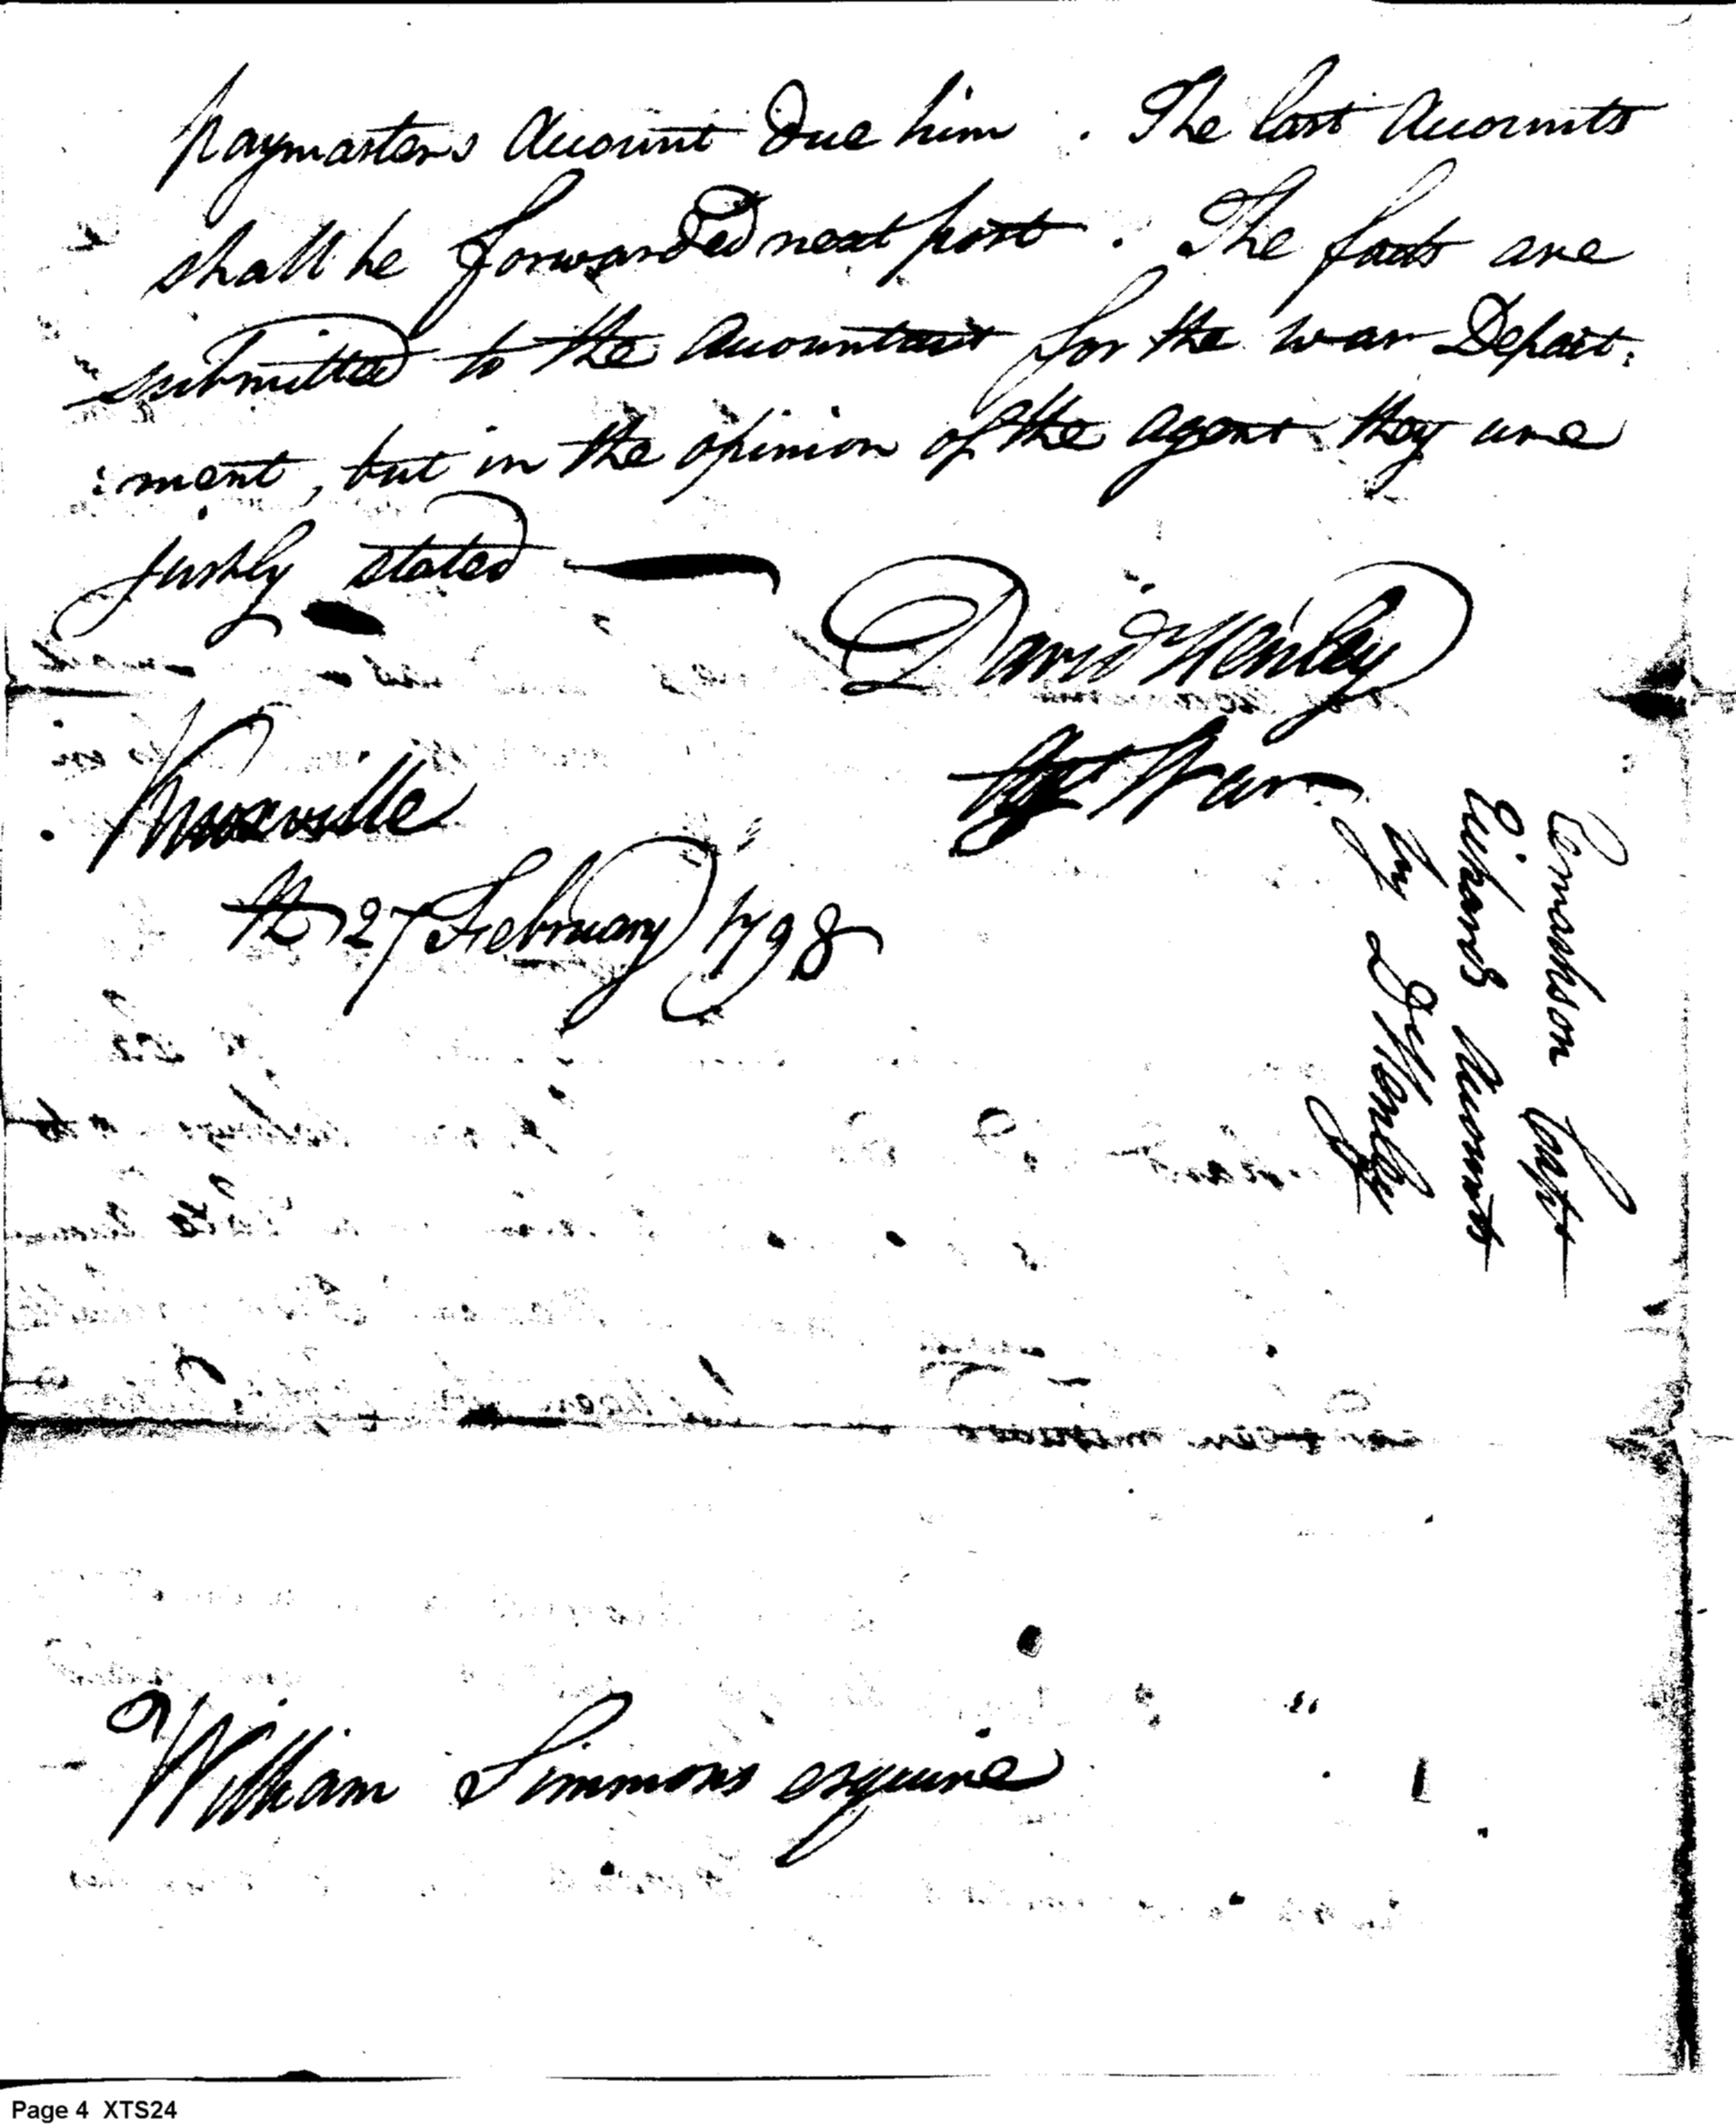 paymasters Account Due him . The last Accounts
shall be forwarded next post . The facts are
submitted to the Accountant for the war Depart:
:ment, but in the opinion of the agent they are
justly stated —
David Henley
Agt War
Knoxville
27 February 1798
Richards Accounts
by D Henley
William Simmons esquire
Page 4 XTS24